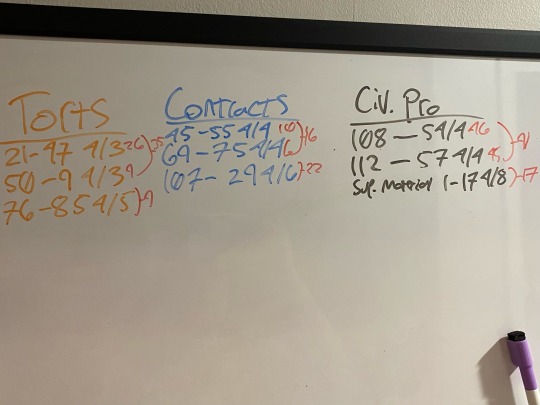 Torts
21-47 4/3 26
50-9 4/3 9
35
76-85 4/5 9
Contracts
45-55 4/4 10
69-75 4/4 6
16
107-29 4/6 22
Civ. Pro
108-54/4 46
112-57 4/4
91
Sup. Material 1-17 4/8 17